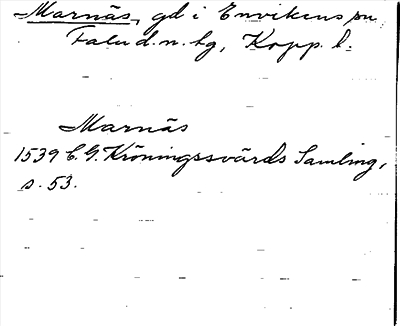 Marnäs, gd i Envikens sn
Falu d.n. tg, Kopp. l:
Marnäs
1539 C. G. Kröningssvärds Samling,
s. 53.